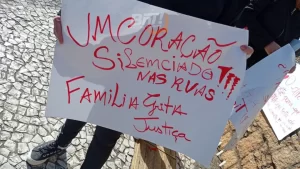 UM CORAÇÃO
SiLenciado
NAS RUAS
FAMILIA Grita
Justiça